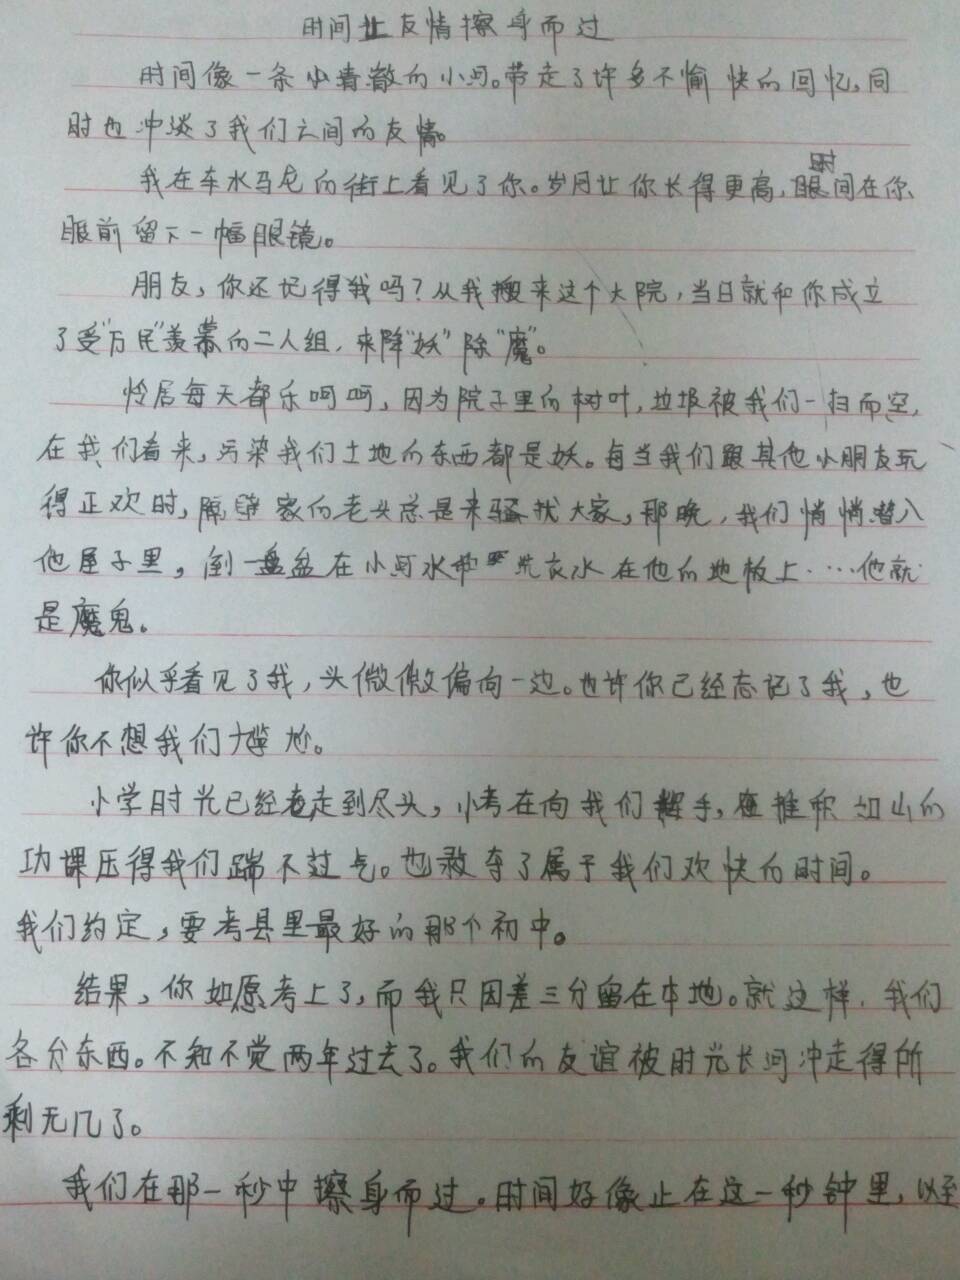 时间让友情擦身而过
时间像一条小清澈的小河。带走了许多不愉快的回忆,同
时也冲淡了我们之间的友情。
我在车水马龙的街上看见了你。岁月让你长得更高,时间在你
眼前留下一幅眼镜。
朋友,你还记得我吗?从我搬来这个大院,当日就和你成立
了受"万民"羡慕的二人组,来降"妖"除"魔"。
怜居每天都乐呵呵,因为院子里的树叶,垃圾被我们一扫而空,
在我们看来,污染我们土地的东西都是妖。每当我们跟其他小朋友玩
得正欢时,隔壁家的老头总是来骚扰大家,那晚,我们悄悄潜入
他屋子里,倒一盘盆在小河水带 洗衣水在他的地板上……他就
是魔鬼。
你似乎看见了我,头微微偏向一边。也许你已经忘记了我,也
许你不想我们尴尬。
小学时光已经走到尽头,小考在向我们挥手,在堆积如山的
功课压得我们踹不过气。也救夺了属于我们欢快的时间。
我们约定,要考县里最好的那个初中。
结果,你如愿考上了,而我只因差三分留在本地。就这样,我们
各分东西。不知不觉两年过去了。我们的友谊被时光长河冲走得所
剩无几了。
我们在那一秒中擦身而过。时间好像止在这一秒钟里,以至